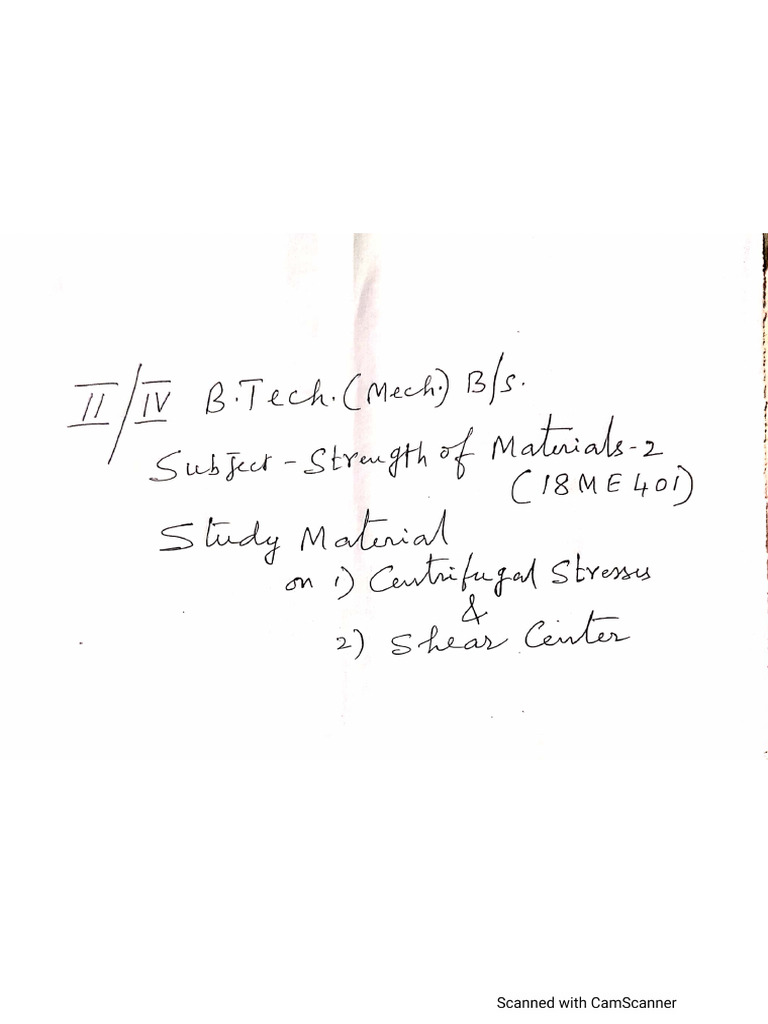 II/IV B.Tech.(Mech.) B/s.
Subject - Strength of Materials-2
(18ME401)
Study Material
on 1) Centrifugal Stresses
&
2) Shear Center
Scanned with CamScanner